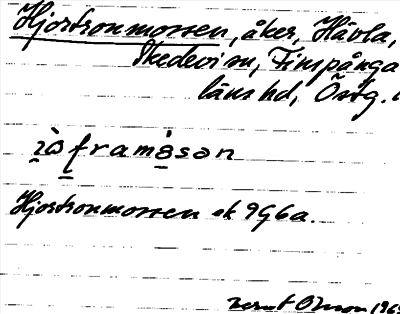 Hjortronmossen, åker, Hävla,
Skedevi sn, Finspånga
läns hd, Östg.
Hjortronmossen ek 9G6a.
Bernt Olsson 196